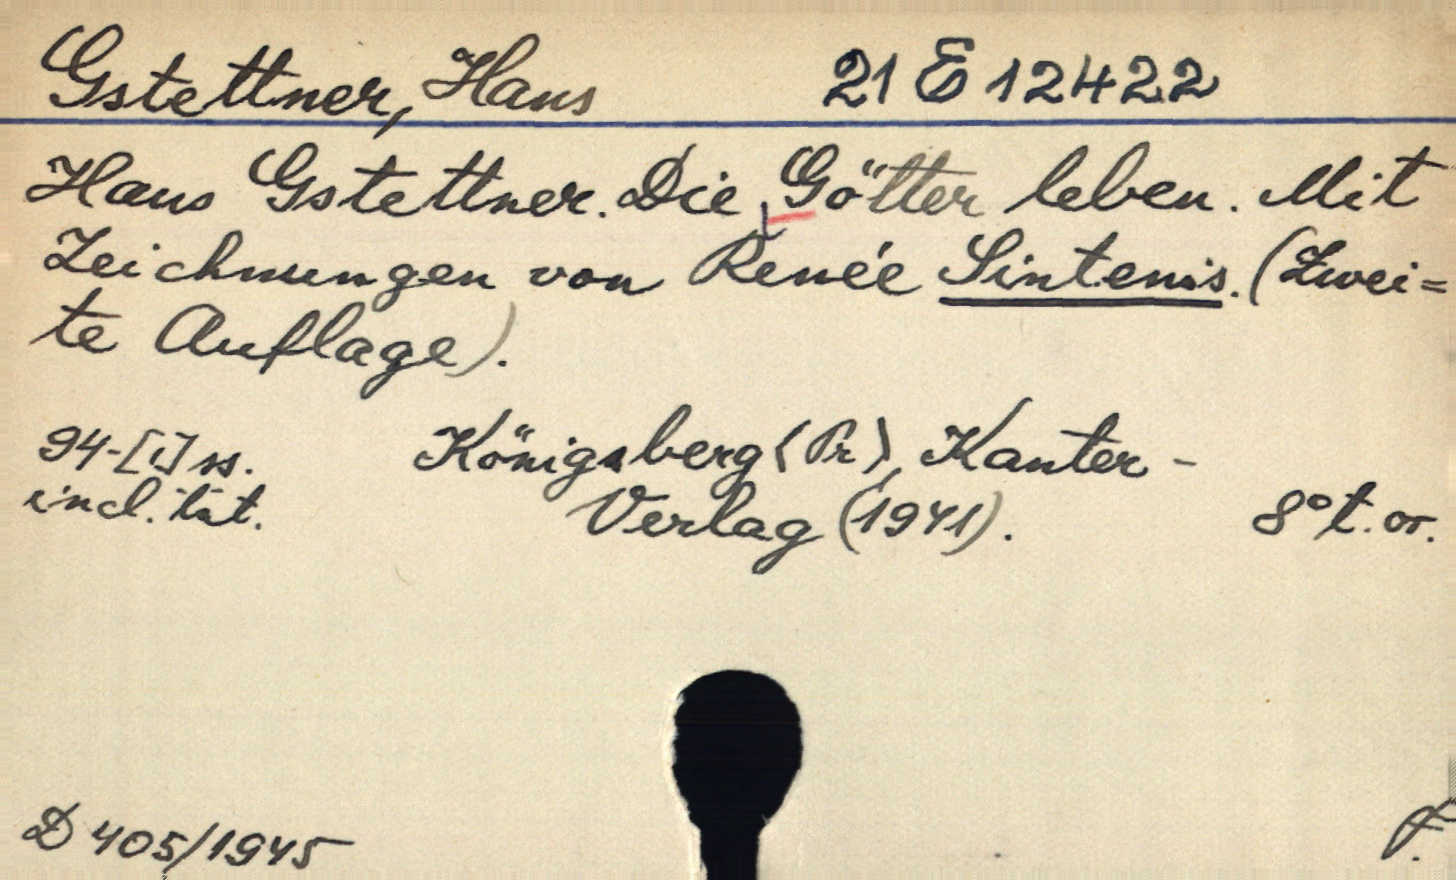 Gstettner, Hans 21 E 12422
Hans Gstettner. Die Götter leben. Mit
Zeichnungen von Renée Sintenis. (Zwei=
te Auflage).
94-[1] ss. Königsberg <Pr>, Kanter-
incl. tit. Verlag (1941). 8° t. or.
D 405/1945